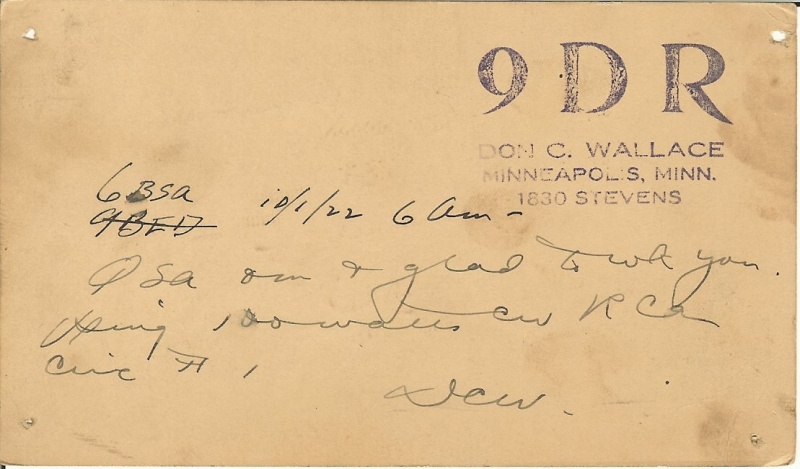 9DR
DON C. WALLACE
MINNEAPOLIS, MINN.
1830 STEVENS
6BSA
9BED 10/1/22 6 am -
QSA om & glad to wk you.
Using 100 watts CW RCA
Circ # 1
DCW.